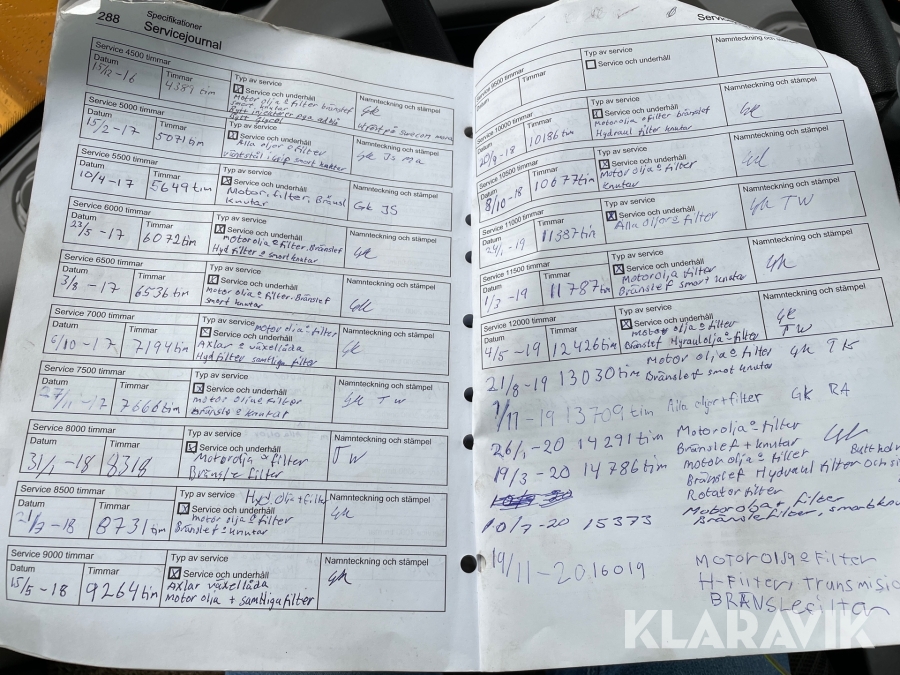 288
Specifikationer
Servicejournal
Service 4500 timmar
Datum Timmar Typ av service Namnteckning och stämpel
15/12-16 4389 tim Service och underhåll Gk
Motorolja o filter bränslef
smort knutar
Service 5000 timmar
Datum Timmar Typ av service Namnteckning och stämpel
15/2-17 5071 tim Service och underhåll Gk JS
Alla oljor o filter
Service 5500 timmar
Datum Timmar Typ av service Namnteckning och stämpel
10/4-17 5649 tim Service och underhåll Gk JS
Motor, filter, Bränsl
knutar
Service 6000 timmar
Datum Timmar Typ av service Namnteckning och stämpel
23/5-17 6072 tim Service och underhåll Gk
motorolja o filter. Bränslef
Hyd filter o smort knutar
Service 6500 timmar
Datum Timmar Typ av service Namnteckning och stämpel
3/8-17 6536 tim Service och underhåll Gk
Motorolja o filter. Bränslef
smort knutar
Service 7000 timmar
Datum Timmar Typ av service Namnteckning och stämpel
motorolja o filter
6/10-17 7194 tim Service och underhåll Gk
Axlar o växellåda
Hydfilter samtliga filter
Service 7500 timmar
Datum Timmar Typ av service Namnteckning och stämpel
27/11-17 7666 tim Service och underhåll Gk TW
motorolja o filter
Bränsle o knutar
Service 8000 timmar
Datum Timmar Typ av service Namnteckning och stämpel
31/1-18 8318 Service och underhåll TW
Motorolja o filter
Bränsle filter
Service 8500 timmar
Datum Timmar Typ av service Hydolja + filter Namnteckning och stämpel
21/3-18 8731 tim Service och underhåll Gk
motorolja o filter
Bränslef o knutar
Service 9000 timmar
Datum Timmar Typ av service Namnteckning och stämpel
15/5-18 9264 tim Service och underhåll Gk
Axlar växellåda
Motorolja + samtliga filter
Service 9500 timmar
Datum Timmar Typ av service Namnteckning och
Service och underhåll
Service 10000 timmar
Datum Timmar Typ av service Namnteckning och stämpel
20/9-18 10186 tim Service och underhåll Gk
Motorolja o filter bränslef
Hydraul filter knutar
Service 10500 timmar
Datum Timmar Typ av service Namnteckning och stämpel
8/10-18 10677 tim Service och underhåll Gk
Motorolja o filter Bränslef
knutar
Service 11000 timmar
Datum Timmar Typ av service Namnteckning och stämpel
24/1-19 11387 tim Service och underhåll Gk TW
Alla oljor o filter
Service 11500 timmar
Datum Timmar Typ av service Namnteckning och stämpel
1/3-19 11787 tim Service och underhåll Gk
Motorolja filter
Bränslef smort knutar
Service 12000 timmar
Datum Timmar Typ av service Namnteckning och stämpel
4/5-19 12426 tim Service och underhåll Gk
Motorolja o filter TW
Bränslef Hyraulolja-filter
21/8-19 13030 tim Motorolja o filter Gk
Bränslef smort knutar
1/11-19 13709 tim Alla oljor + filter GK RA
26/1-20 14291 tim Motorolja o filter
Bränslef + knutar Gk
19/3-20 14786 tim motorolja o filter
Bränslef Hydraul filter och
Rotator filter
10/7-20 15373 Motorolja, filter
Bränslefilter, smort
19/11-20 16019 MOTOROLJA o Filter
H-Filter, Transmisio
BRÄNSLEfilter
KLARAVIK